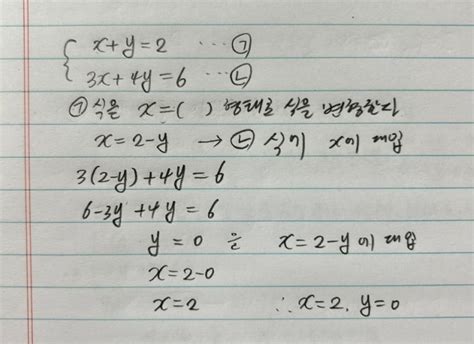 x+y=2 ⋯ ㉠
3x+4y=6 ⋯ ㉡
㉠ 식을 x=( ) 형태로 식을 변형한다
x=2-y → ㉡ 식의 x에 대입
3(2-y)+4y=6
6-3y+4y=6
y=0 을 x=2-y에 대입
x=2-0
x=2 ∴ x=2, y=0